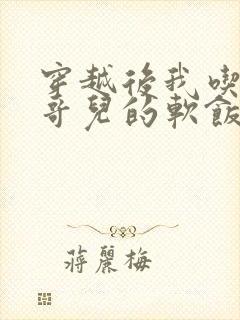 穿越後我喫
哥兒的軟飯
蔣麗梅